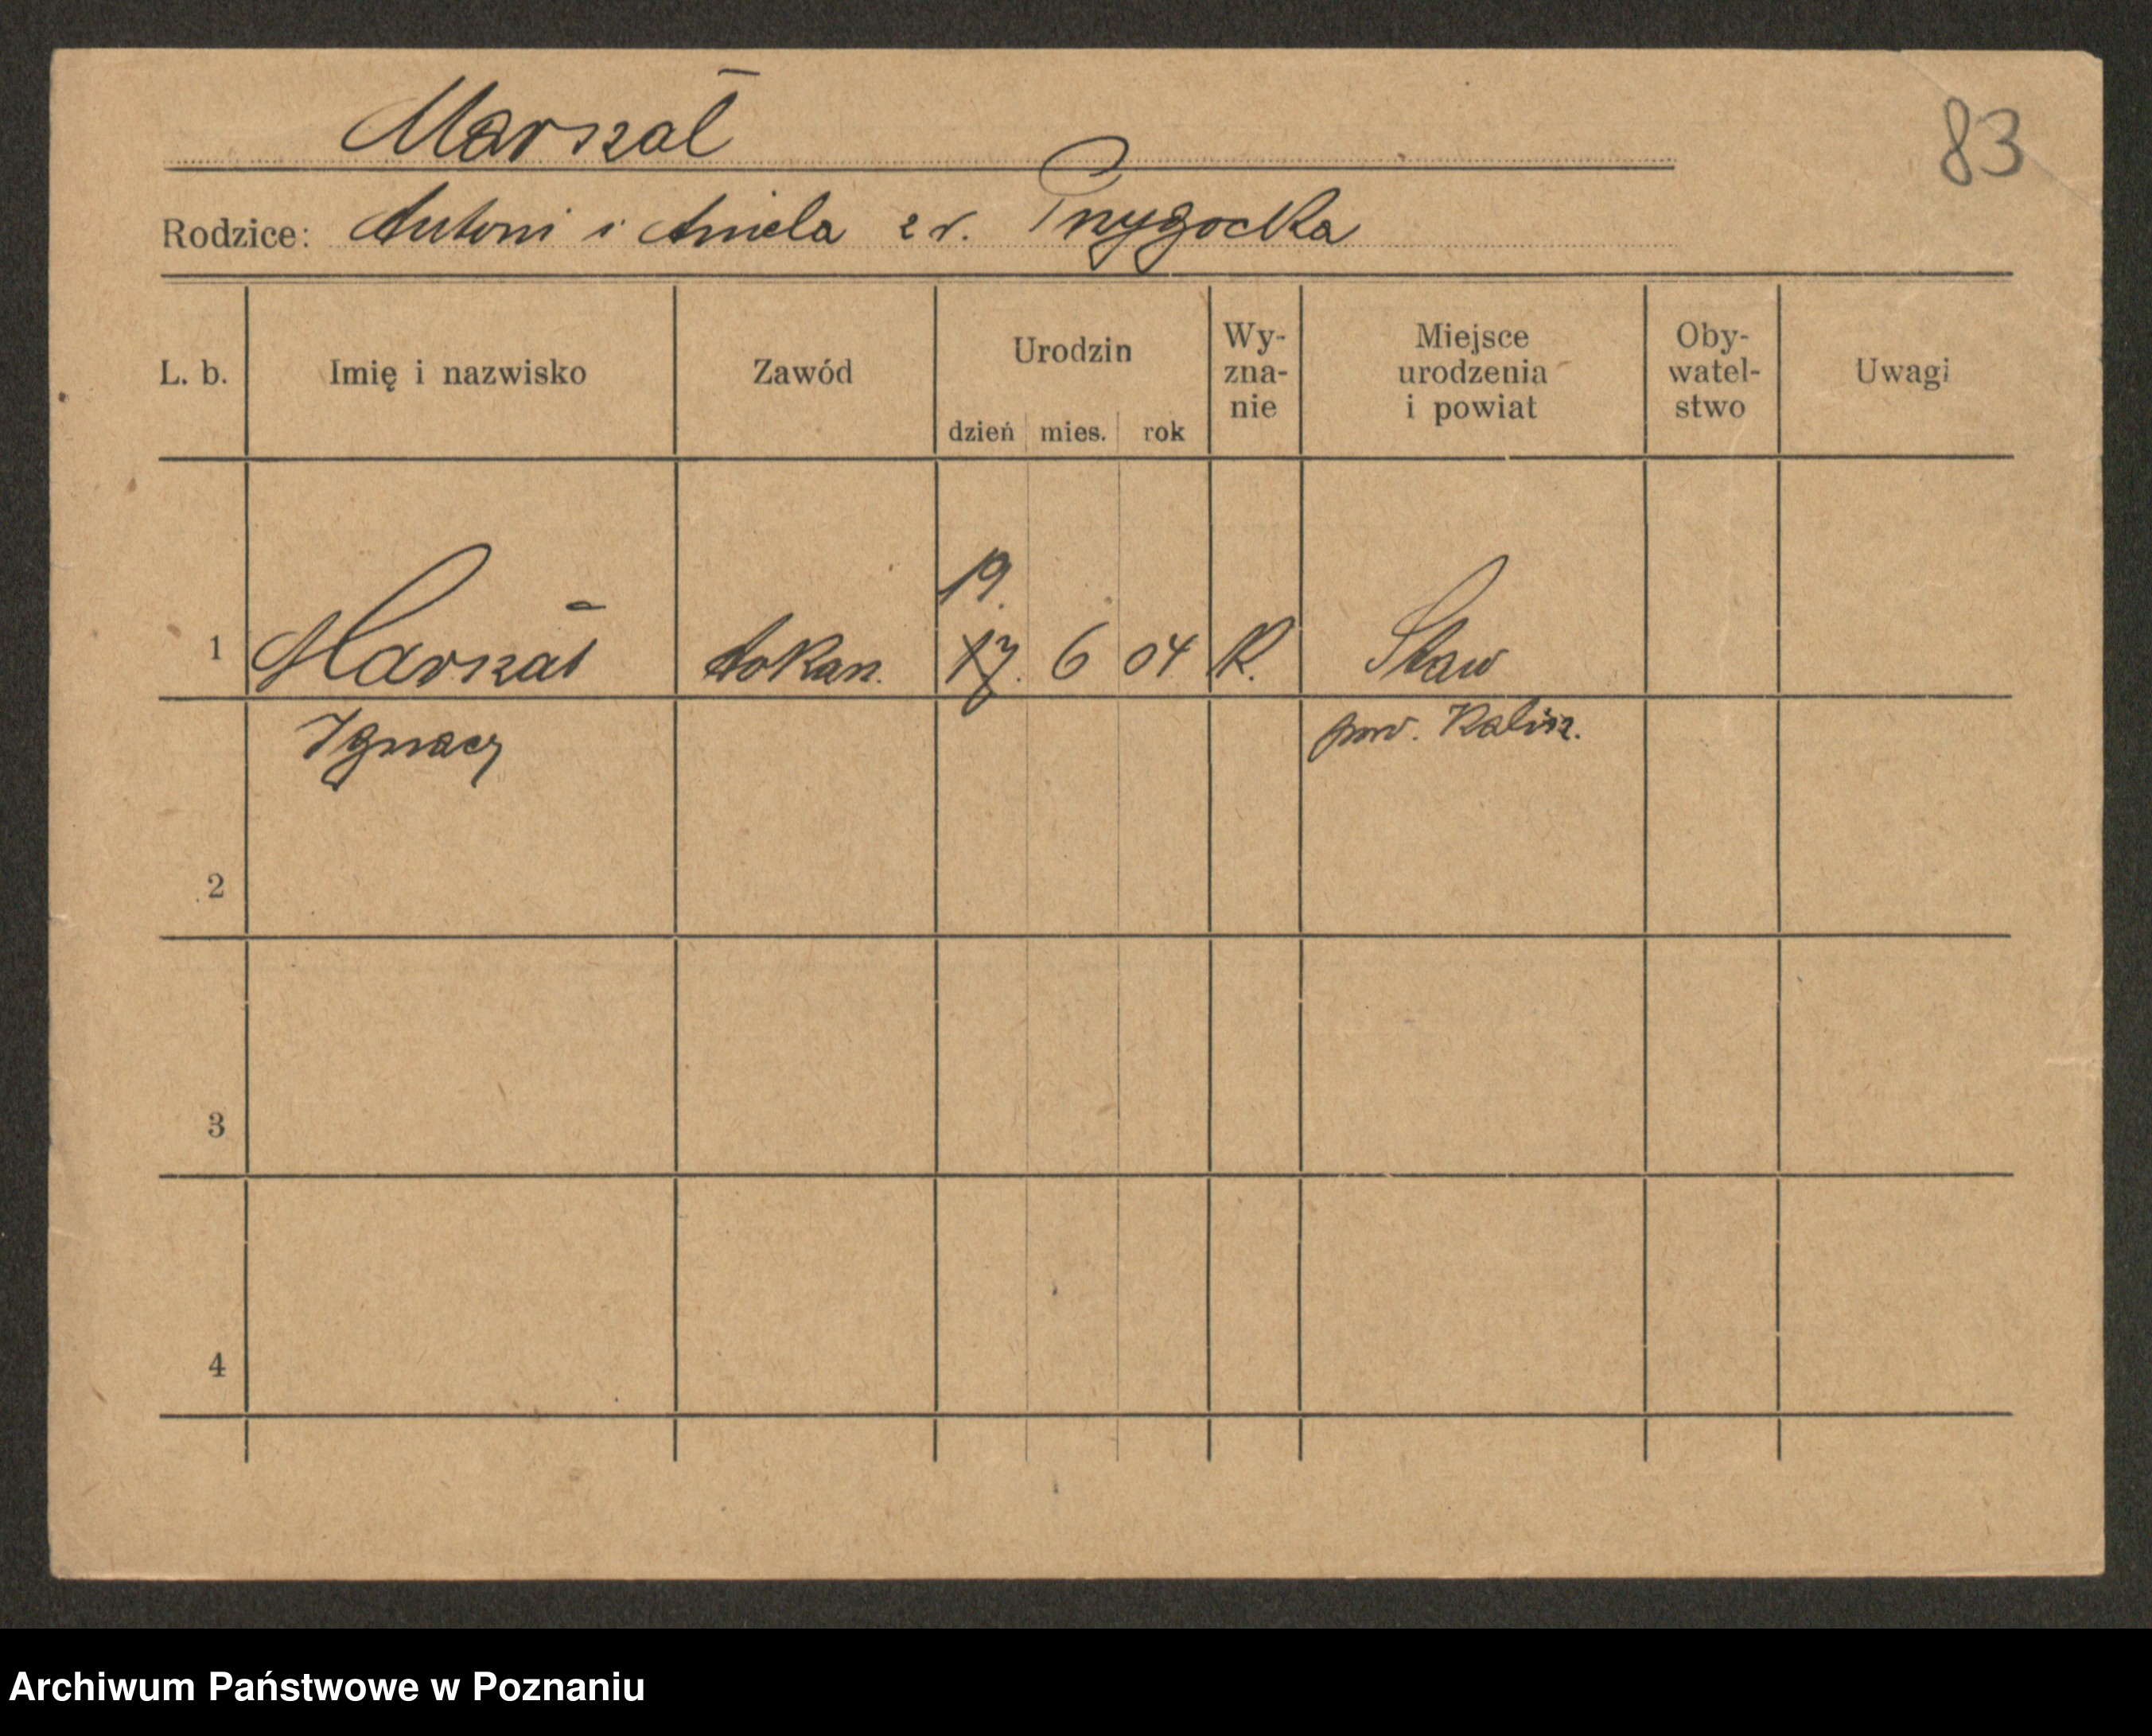 Marszał
83
Rodzice: Antoni i Aniela z r. Przygocka
L. b. Imię i nazwisko Zawód Urodzin dzień mies. rok Wy-zna-nie Miejsce urodzenia i powiat Oby-watel-stwo Uwagi
19.
1 Marszał 17. 6 04 R. Staw
Ignacy pow. Kalisz.
2
3
4
Archiwum Państwowe w Poznaniu